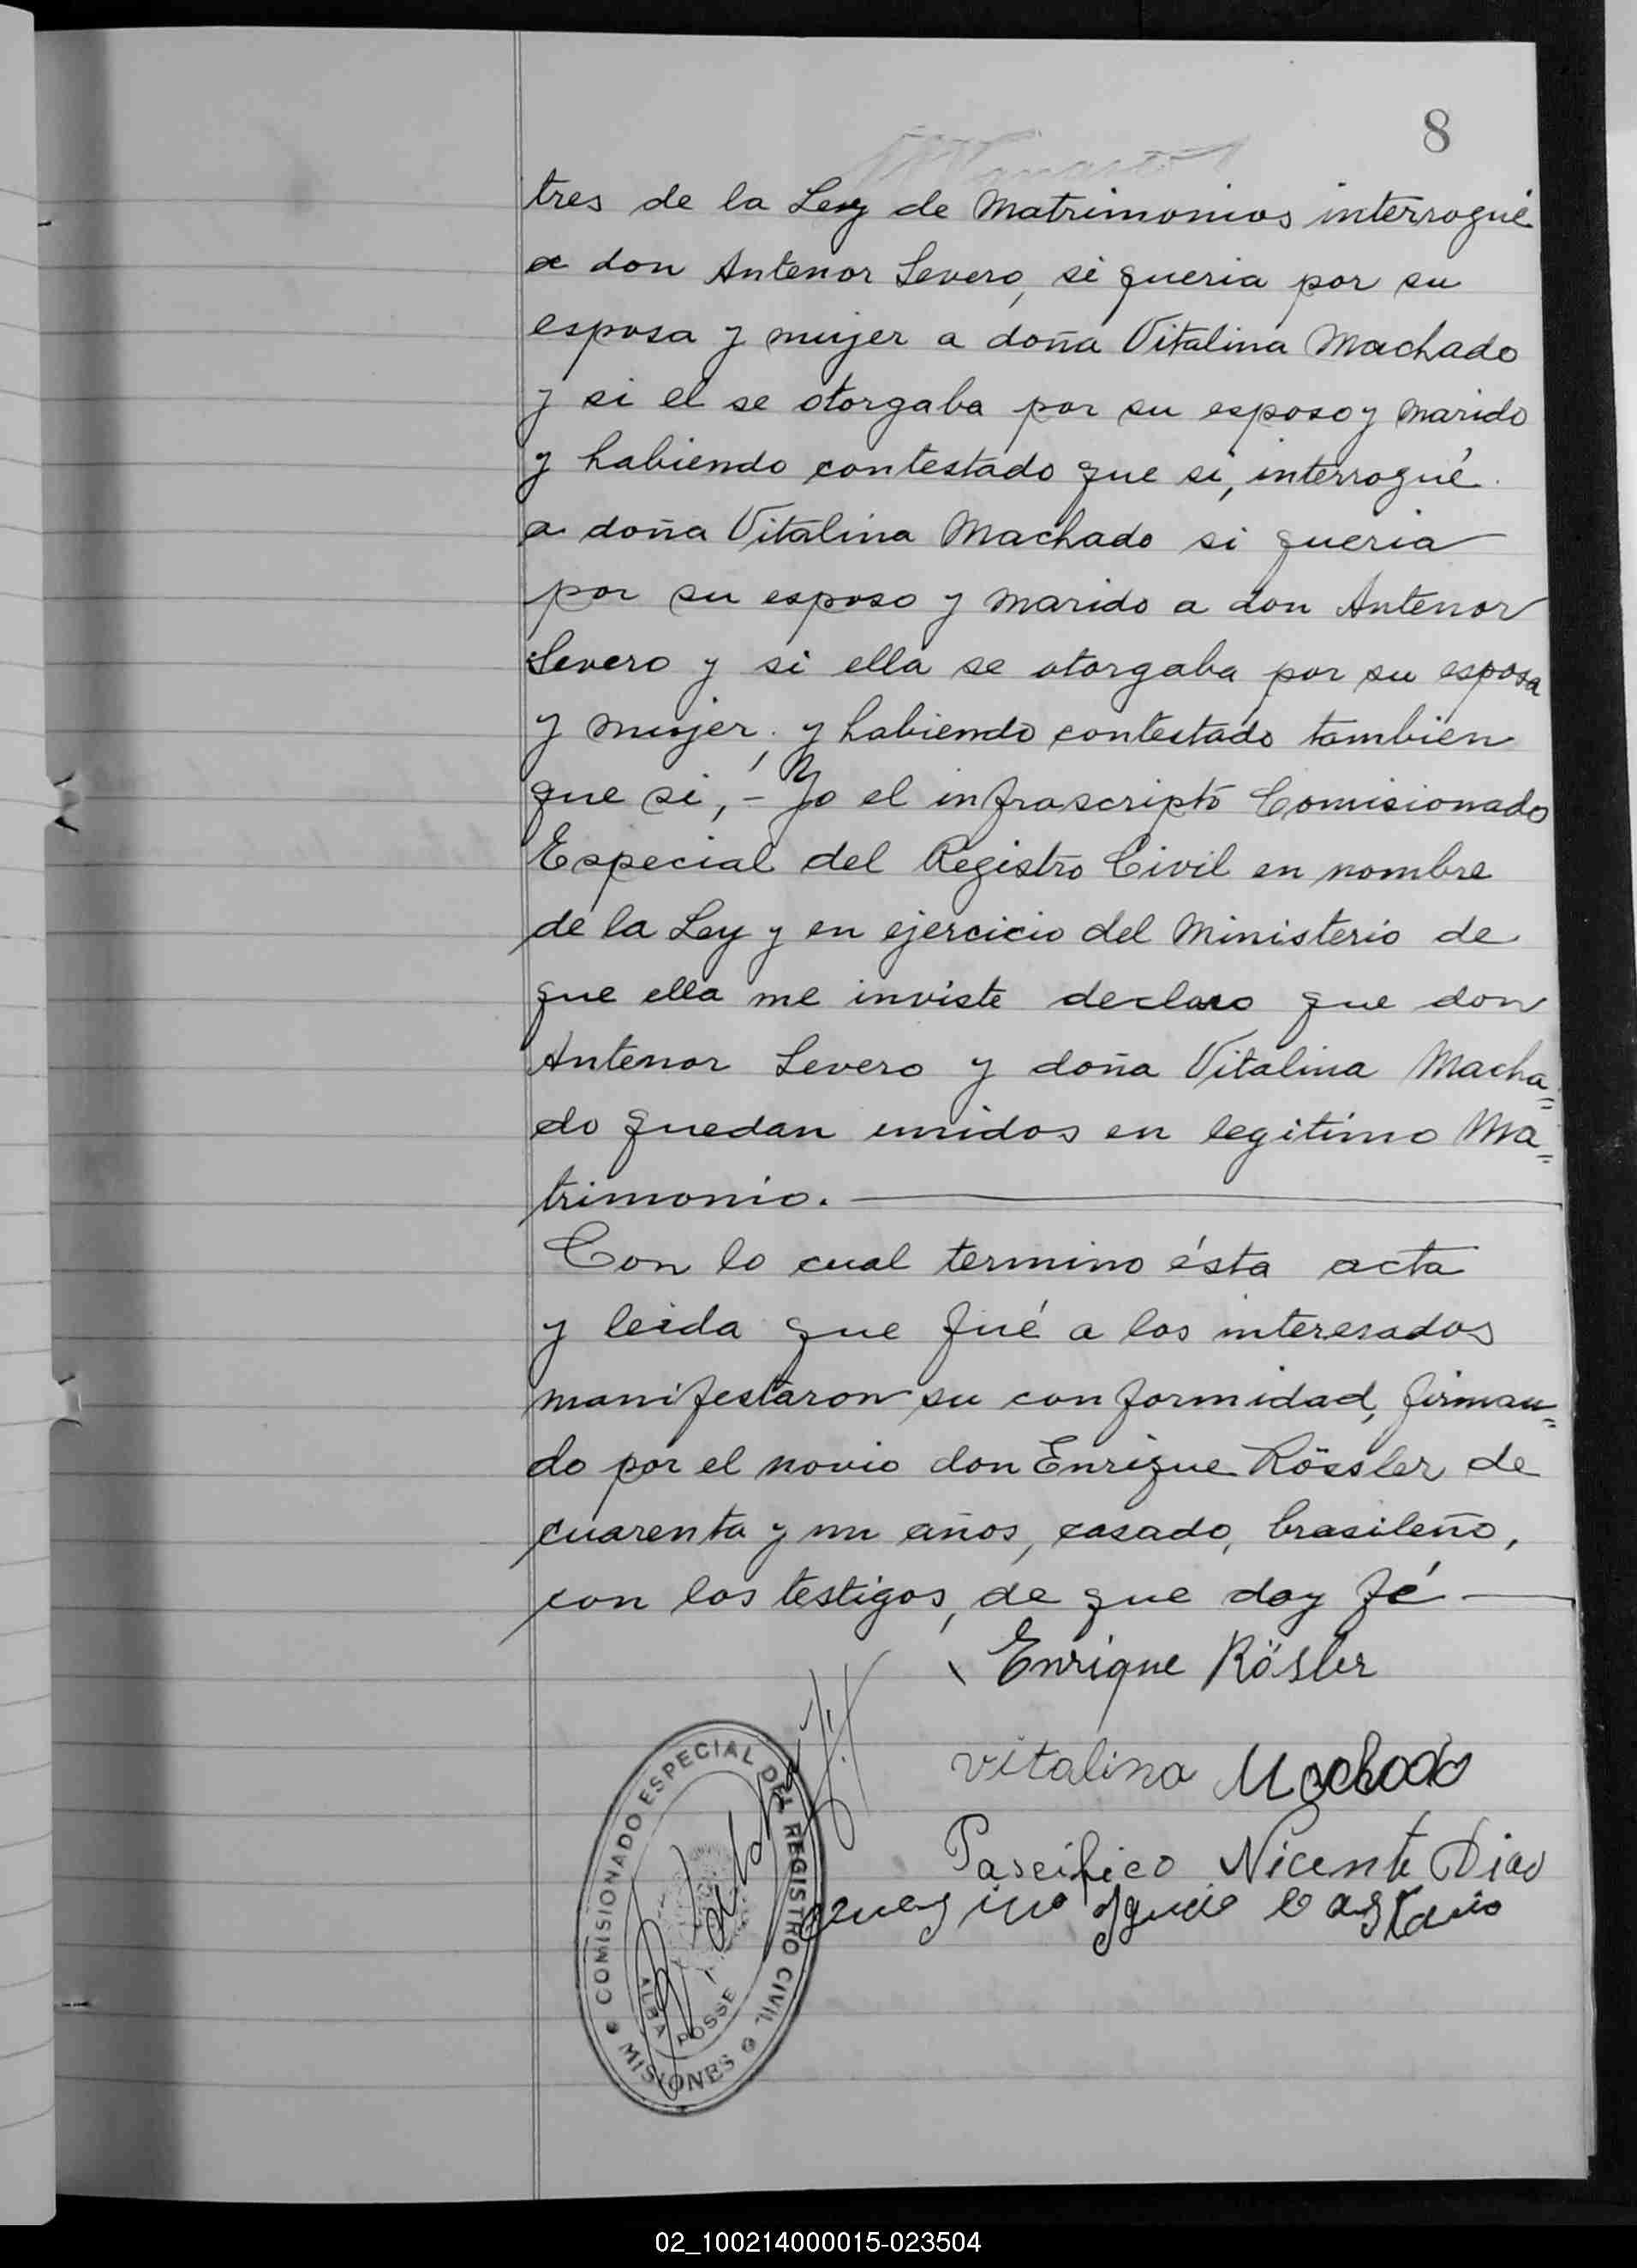 8
tres de la Ley de Matrimonios interrogué
a don Antenor Severo, si queria por su
esposa y mujer a doña Vitalina Machado
y si el se otorgaba por su esposo y marido
y habiendo contestado que si, interrogué
a doña Vitalina Machado si queria
por su esposo y marido a don Antenor
Severo y si ella se otorgaba por su esposa
y mujer; y habiendo contestado tambien
que si, - Yo el infrascripto Comisionado
Especial del Registro Civil en nombre
de la Ley y en ejercicio del Ministerio de
que ella me inviste declaro que don
Antenor Severo y doña Vitalina Macha=
do quedan unidos en legitimo Ma=
trimonio.
Con lo cual termino ésta acta
y leida que fué a los interesados
manifestaron su conformidad, firman=
do por el novio don Enrique Rössler de
cuarenta y un años, casado, brasileño,
con los testigos, de que doy fé
Enrique Rösler
Vitalina Machado
Pascifico Vicente Dias
COMISIONADO ESPECIAL DEL REGISTRO CIVIL
ALBA POSSE
MISIONES
02_100214000015-023504